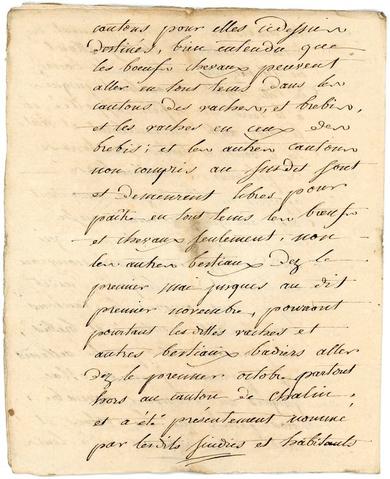 cantons pour elles cydessus
destinés, bien entendu que
les bœufs chevaux peuvent
aller en tout tems dans les
cantons des vaches, et brebis,
et les vaches en ceux des
brebis; et les autres cantons
non compris au susdes sont
et demeurent libres pour
paître en tout tems les bœufs
et chevaux seulement, non
les autres bestiaux dez le
premier mai jusques au dit
premier novembre, pouvant
pourtant les dittes vaches et
autres bestiaux aller
dez le premier octobre partout
hors au canton de Chalin,
et a été présentement nommé
par lesdits sindics et habitants